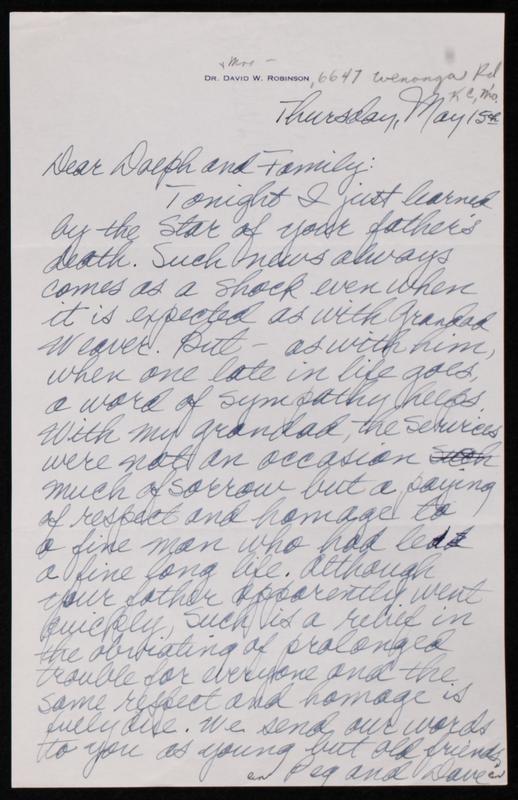 & Mrs —
DR. DAVID W. ROBINSON, 6647 Wenonga Rd
K C, Mo.
Thursday, May 15th
Dear Dolph and Family:
Tonight I just learned
by the Star of your father's
death. Such news always
comes as a shock even when
it is expected as with Grandad
Weaver. But – as with him,
when one late in life goes,
a word of sympathy helps
With my grandad, the services
were not an occasion such
much of sorrow but a paying
of respect and homage to
a fine man who had led
a fine long life. Although
your father apparently went
quickly, such is a relief in
the obviating of prolonged
trouble for everyone and the
same respect and homage is
fully due. We send our words
to you as young but old friends,
Peg and Dave